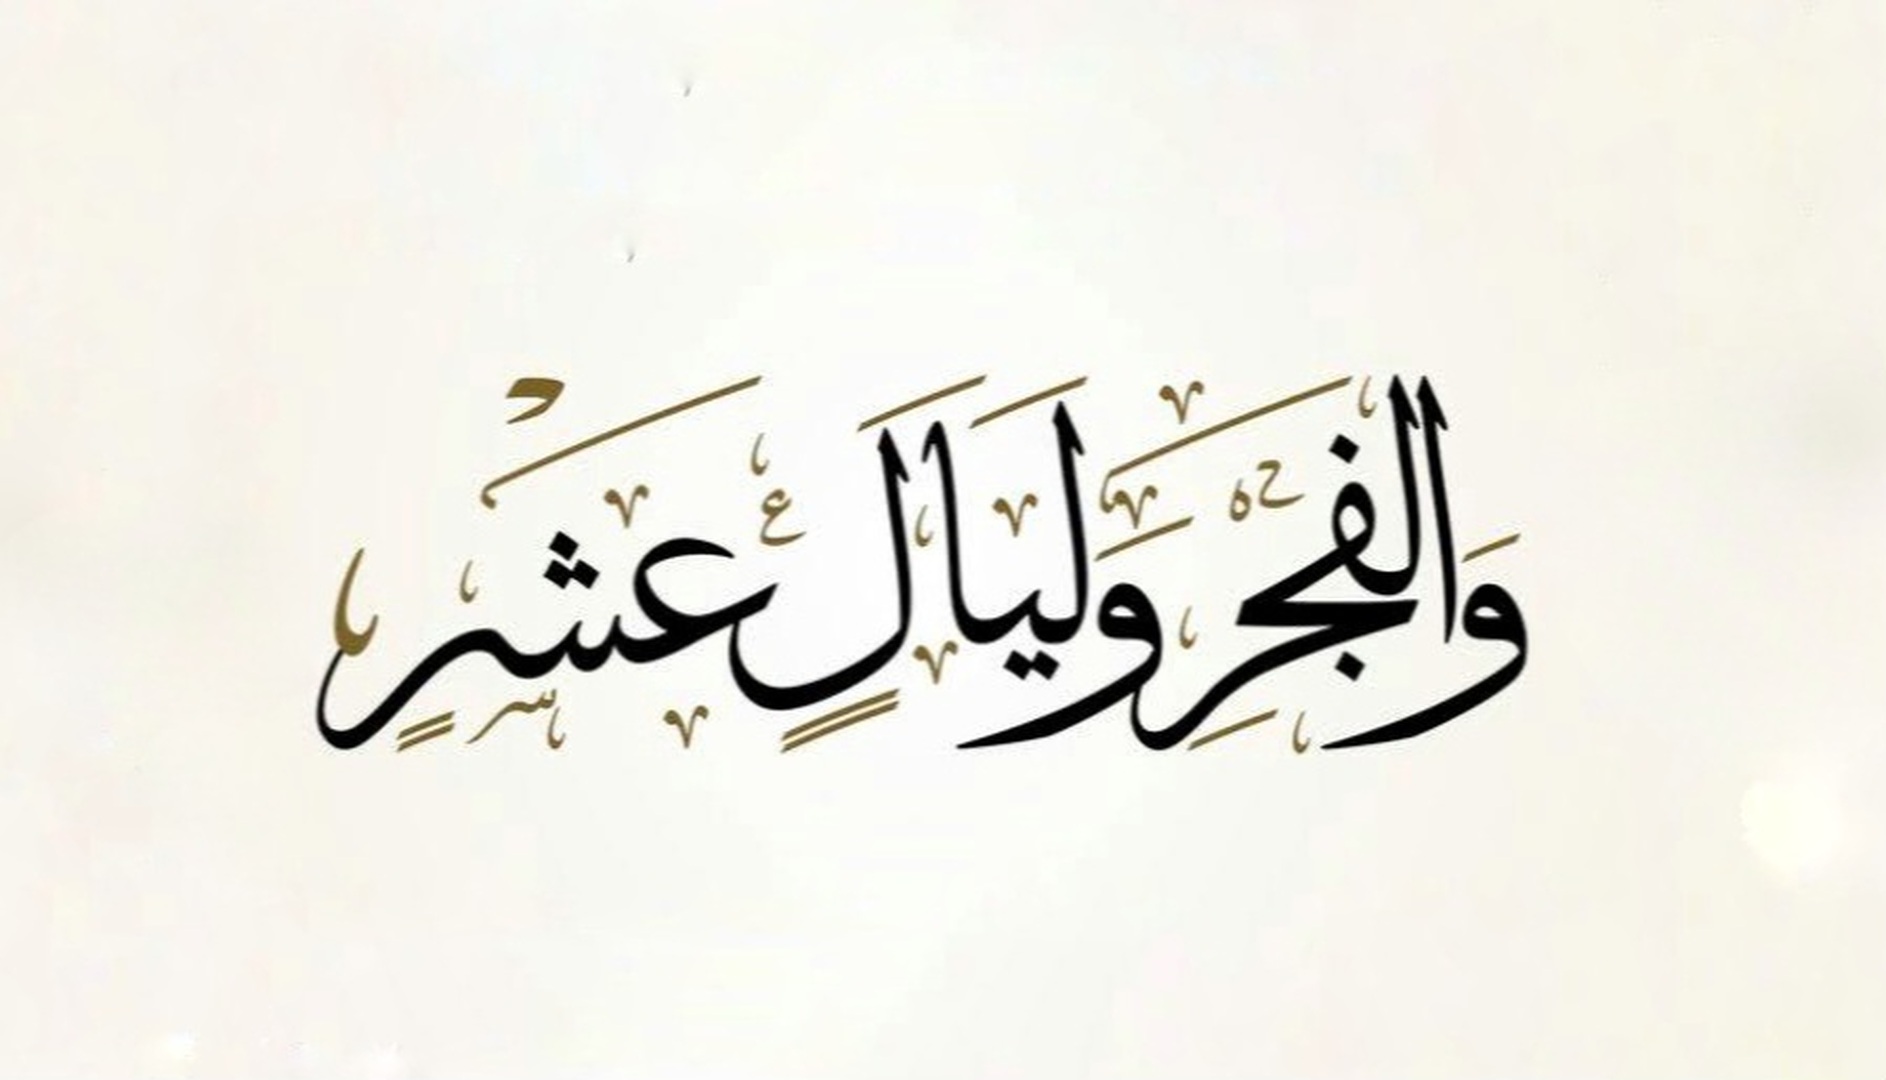 وَالفَجرِ وَلَيَالٍ عَشرٍ